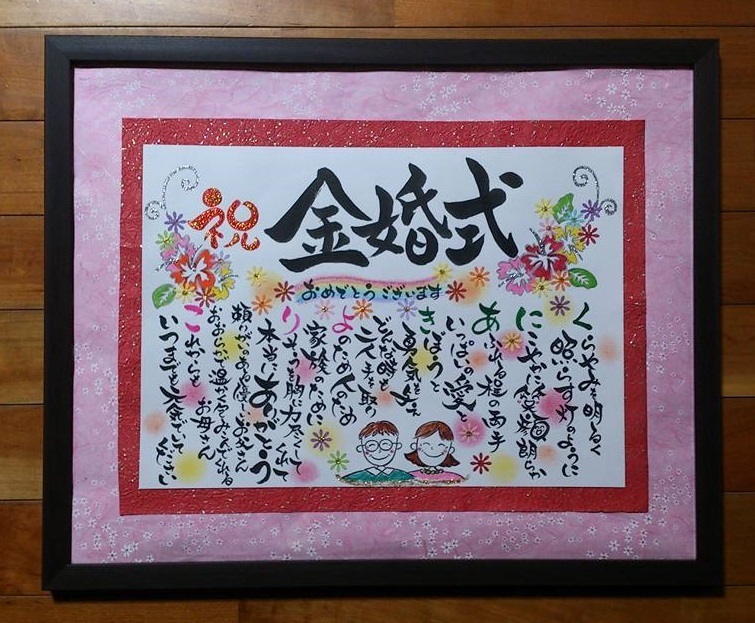 祝 金婚式
おめでとうございます
くらやみを明るく
照らす灯のように
にこやかに笑顔朗らか
あふれる程の両手
いっぱいの愛
きぼうと
勇気を与え
どんな時も
二人手を取り
よのため人のため
家族のために
りそうを胸に力尽くしてくれて
本当にありがとう
頼りがいのある優しいお父さん
おおらかに温かく包みこんでくれる
お母さん
これからも
いつまでも元気でいて
ください